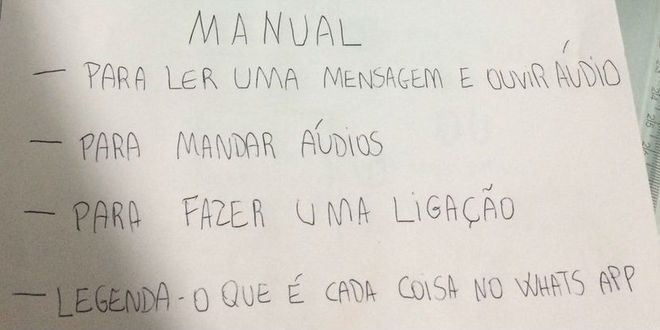 MANUAL
— PARA LER UMA MENSAGEM E OUVIR ÁUDIO
— PARA MANDAR AÚDIOS
— PARA FAZER UMA LIGAÇÃO
— LEGENDA - O QUE É CADA COISA NO WHATS APP